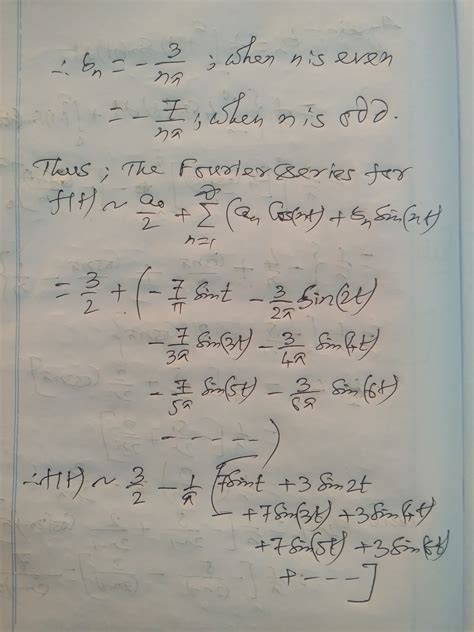 ∴ bn = - 3/nπ ; when n is even
= - 7/nπ ; when n is odd.
Thus ; The Fourier series for
f(t) ~ a0/2 + ∑_{n=1}^{∞} (an Cos(nt) + bn Sin(nt)
= 3/2 + ( - 7/π Sint - 3/2π Sin(2t)
- 7/3π Sin(3t) - 3/4π Sin(4t)
- 7/5π Sin(5t) - 3/6π Sin(6t)
- - - - - )
∴ f(t) ~ 3/2 - 1/π [ 7Sint + 3 Sin2t
+ 7Sin(3t) + 3Sin(4t)
+ 7Sin(5t) + 3Sin(6t)
+ - - - ]